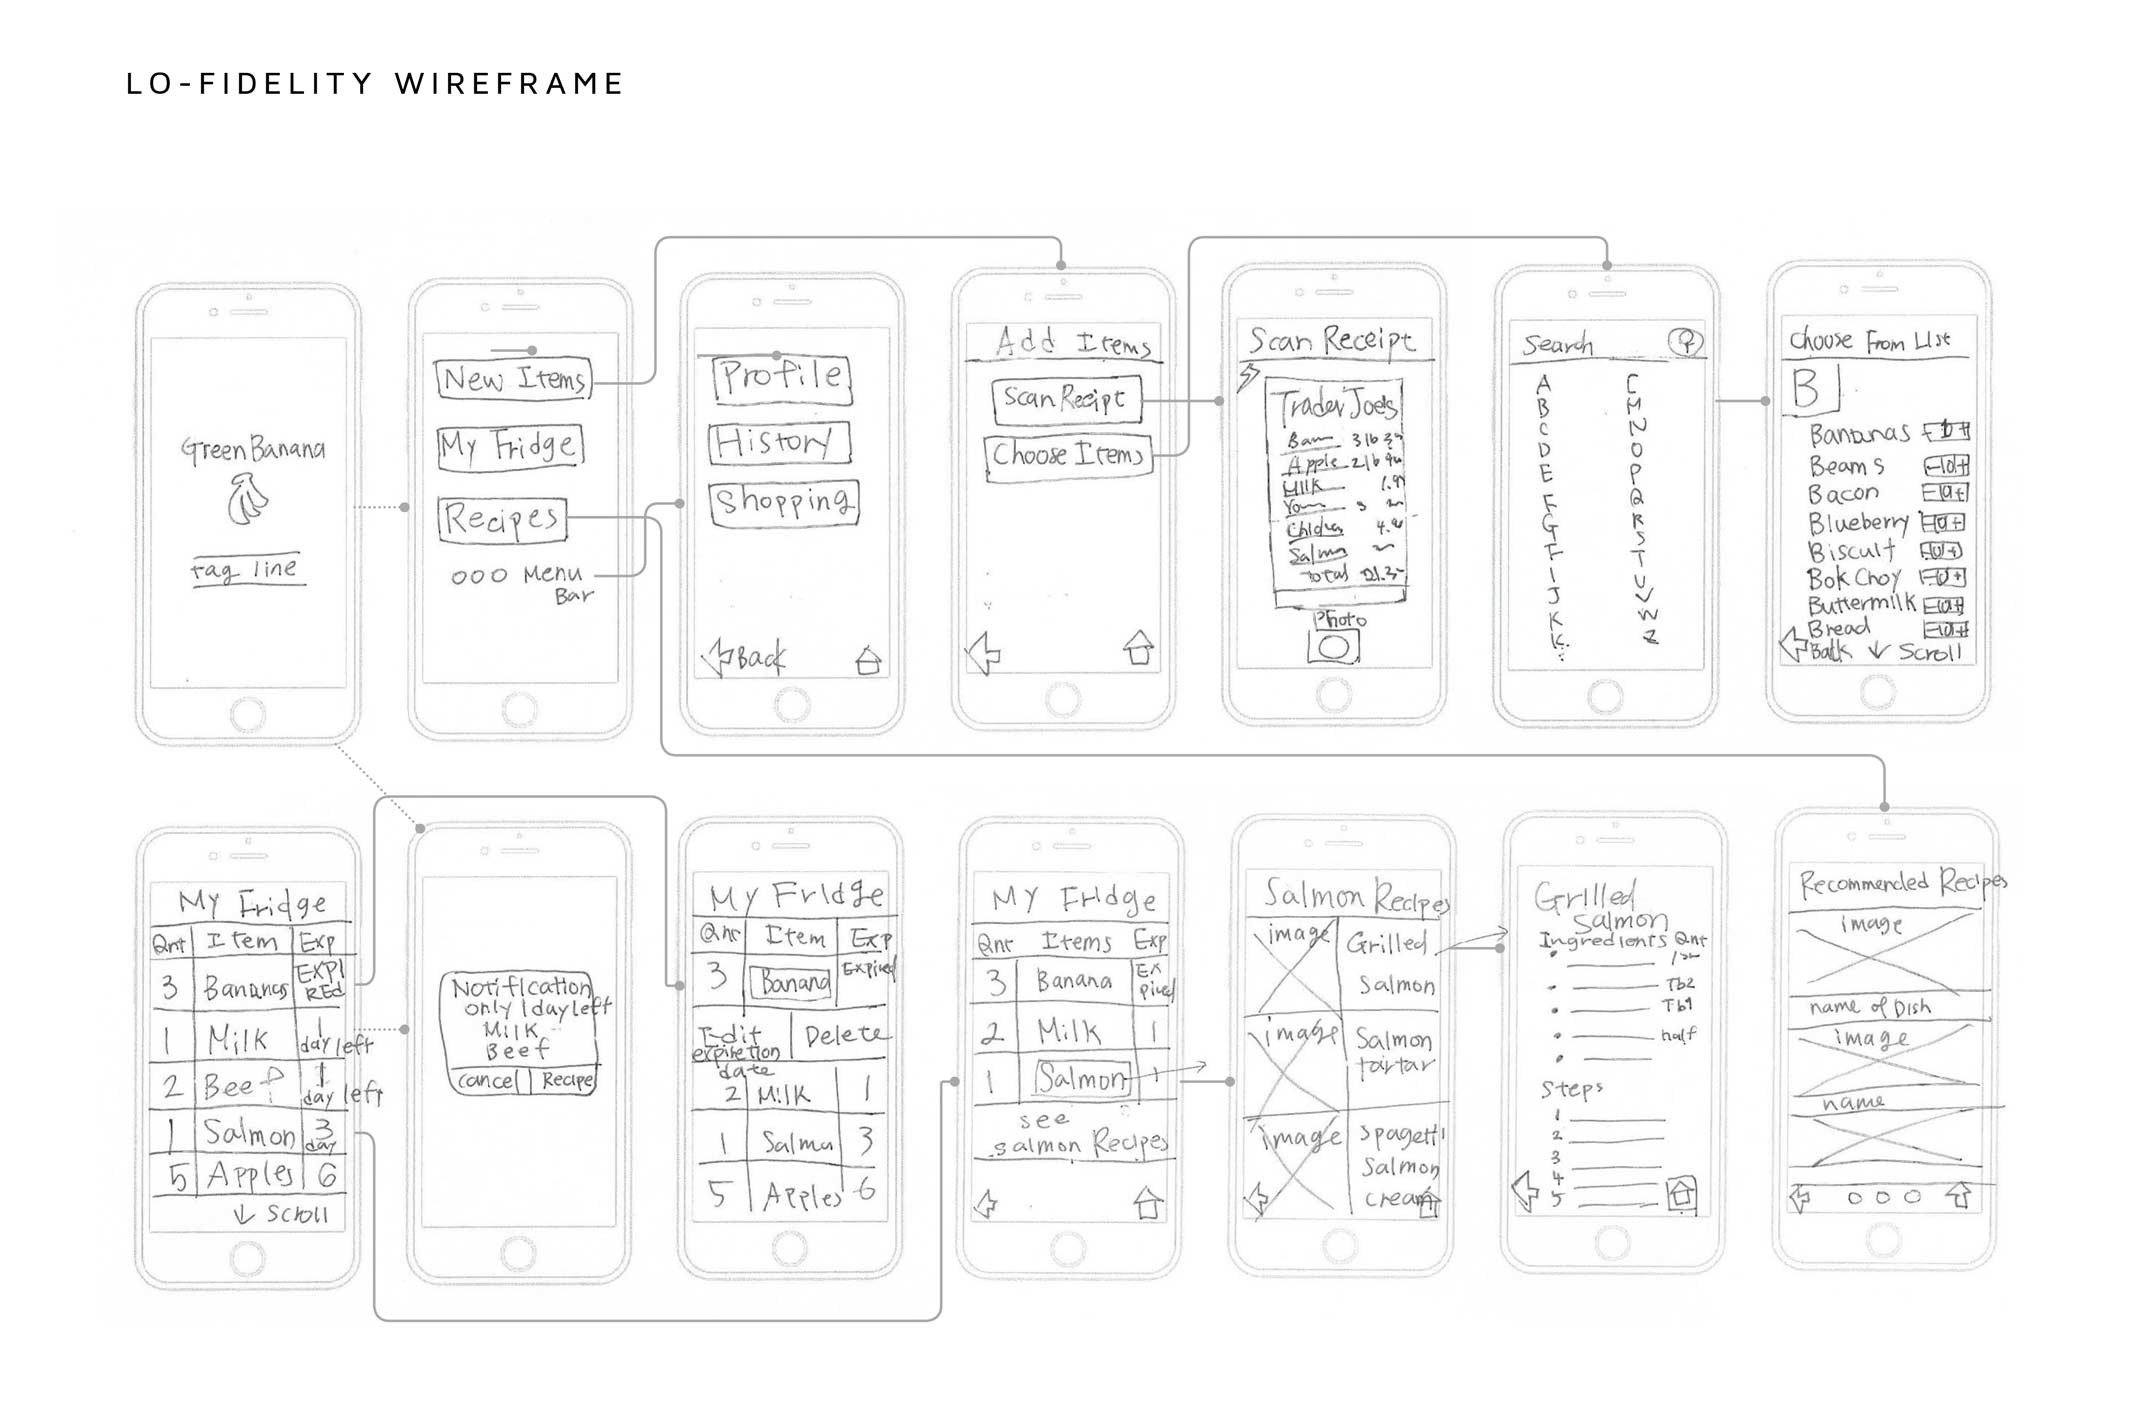 LO-FIDELITY WIREFRAME
GreenBanana
tag line
New Items
My Fridge
Recipes
ooo Menu
Bar
Profile
History
Shopping
Back
Add Items
Scan Recipt
Choose Items
Scan Receipt
Trader Joe's
3 lb
Apple 2 lb
Milk
Salmo
Total 21.3
Photo
Search
A
B
C
D
E
F
G
F
I
J
K
K
C
M
N
O
P
Q
R
S
T
U
V
W
Z
Choose From List
B
Bananas - 1 +
Beams - 0 +
Bacon - 0 +
Blueberry - 0 +
Biscult - 0 +
Bok Choy - 0 +
Buttermilk - 0 +
Bread - 0 +
Back ↓ Scroll
My Fridge
Qnt Item Exp
3 Bananas EXPI
REd
1 Milk 1
day left
2 Beef 1
day left
1 Salmon 3
day
5 Apples 6
↓ Scroll
Notification
only 1 day left
Milk
Beef
Cancel Recipe
My Fridge
Qnt Item Exp
3 Banana Expired
Edit
expiretion
date
Delete
2 Milk 1
1 Salmo 3
5 Apples 6
My Fridge
Qnt Items Exp
3 Banana Ex
pired
2 Milk 1
1 Salmon 1
see
salmon Recipes
Salmon Recipes
image Grilled
Salmon
image Salmon
tartar
image Spagetti
Salmon
cream
Grilled
Salmon
Ingredients Qnt
Tb2
Tb1
half
Steps
1
2
3
4
5
Recommended Recipes
image
name of Dish
image
name